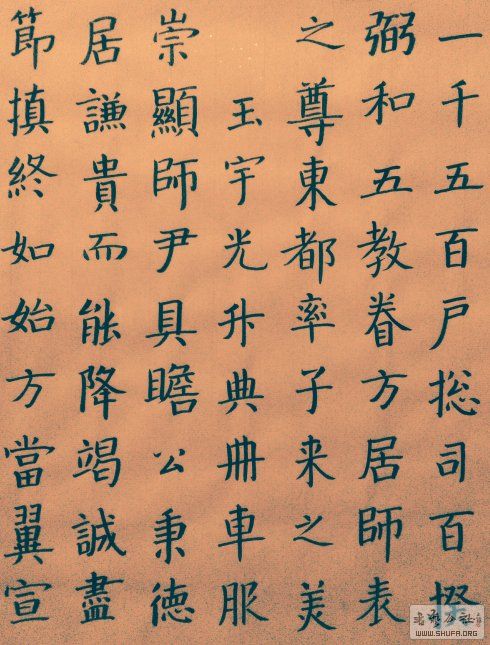 一千五百戶捴司百揆
弼和五教眷方居師表
之尊東都率子来之美
玉宇光升典冊車服
崇顯師尹具瞻公秉徳
居謙貴而能降竭誠盡
節慎終如始方當翼宣
WWW.SHUFA.ORG